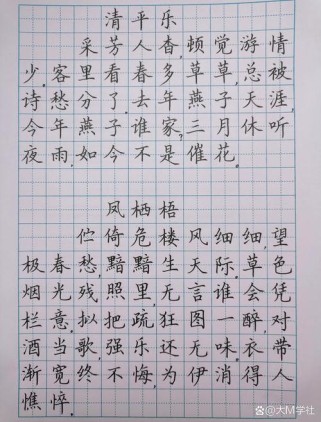 清平乐
采芳人杳,顿觉游情
少,客里看春多草草,总被
诗愁分了。去年燕子天涯,
今年燕子谁家,三月休听
夜雨,如今不是催花。
凤栖梧
伫倚危楼风细细,望
极春愁,黯黯生天际,草色
烟光残照里,无言谁会凭
栏意。拟把疏狂图一醉,对
酒当歌,强乐还无味,衣带
渐宽终不悔,为伊消得人
憔悴。
@大M学社